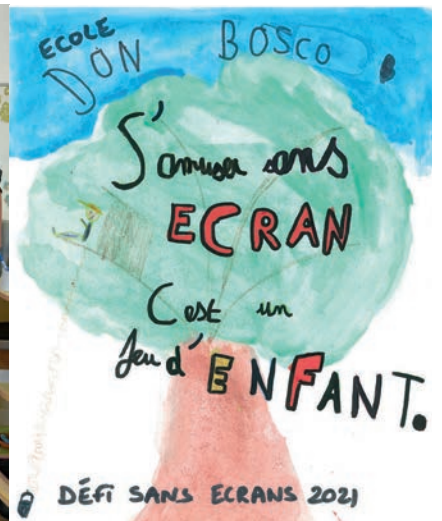 ECOLE
DON BOSCO
S'amuser sans
ECRAN
C'est un
Jeu d'ENFANT.
DÉFI SANS ECRANS 2021